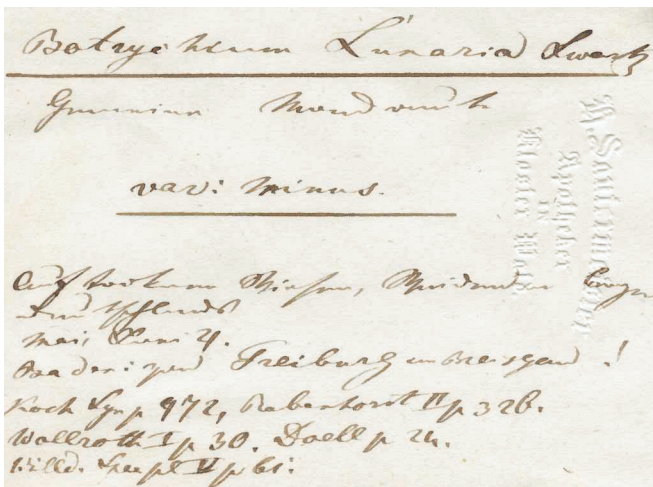 Botrychium Lunaria Swartz
Gemeine Mondraute
var: minus.
Auf trocknen Wiesen, Weiden der Berge
Deutschlands
Mai, Juni ♃.
Freiburg im Breisgau !
Koch Syn p 972, Rabenhorst II p 326.
Wallroth I p 30. Doell p 24.
Willd. Spec pl V p 61.
H. Sautermeister
Apotheker
in
Kloster Wald